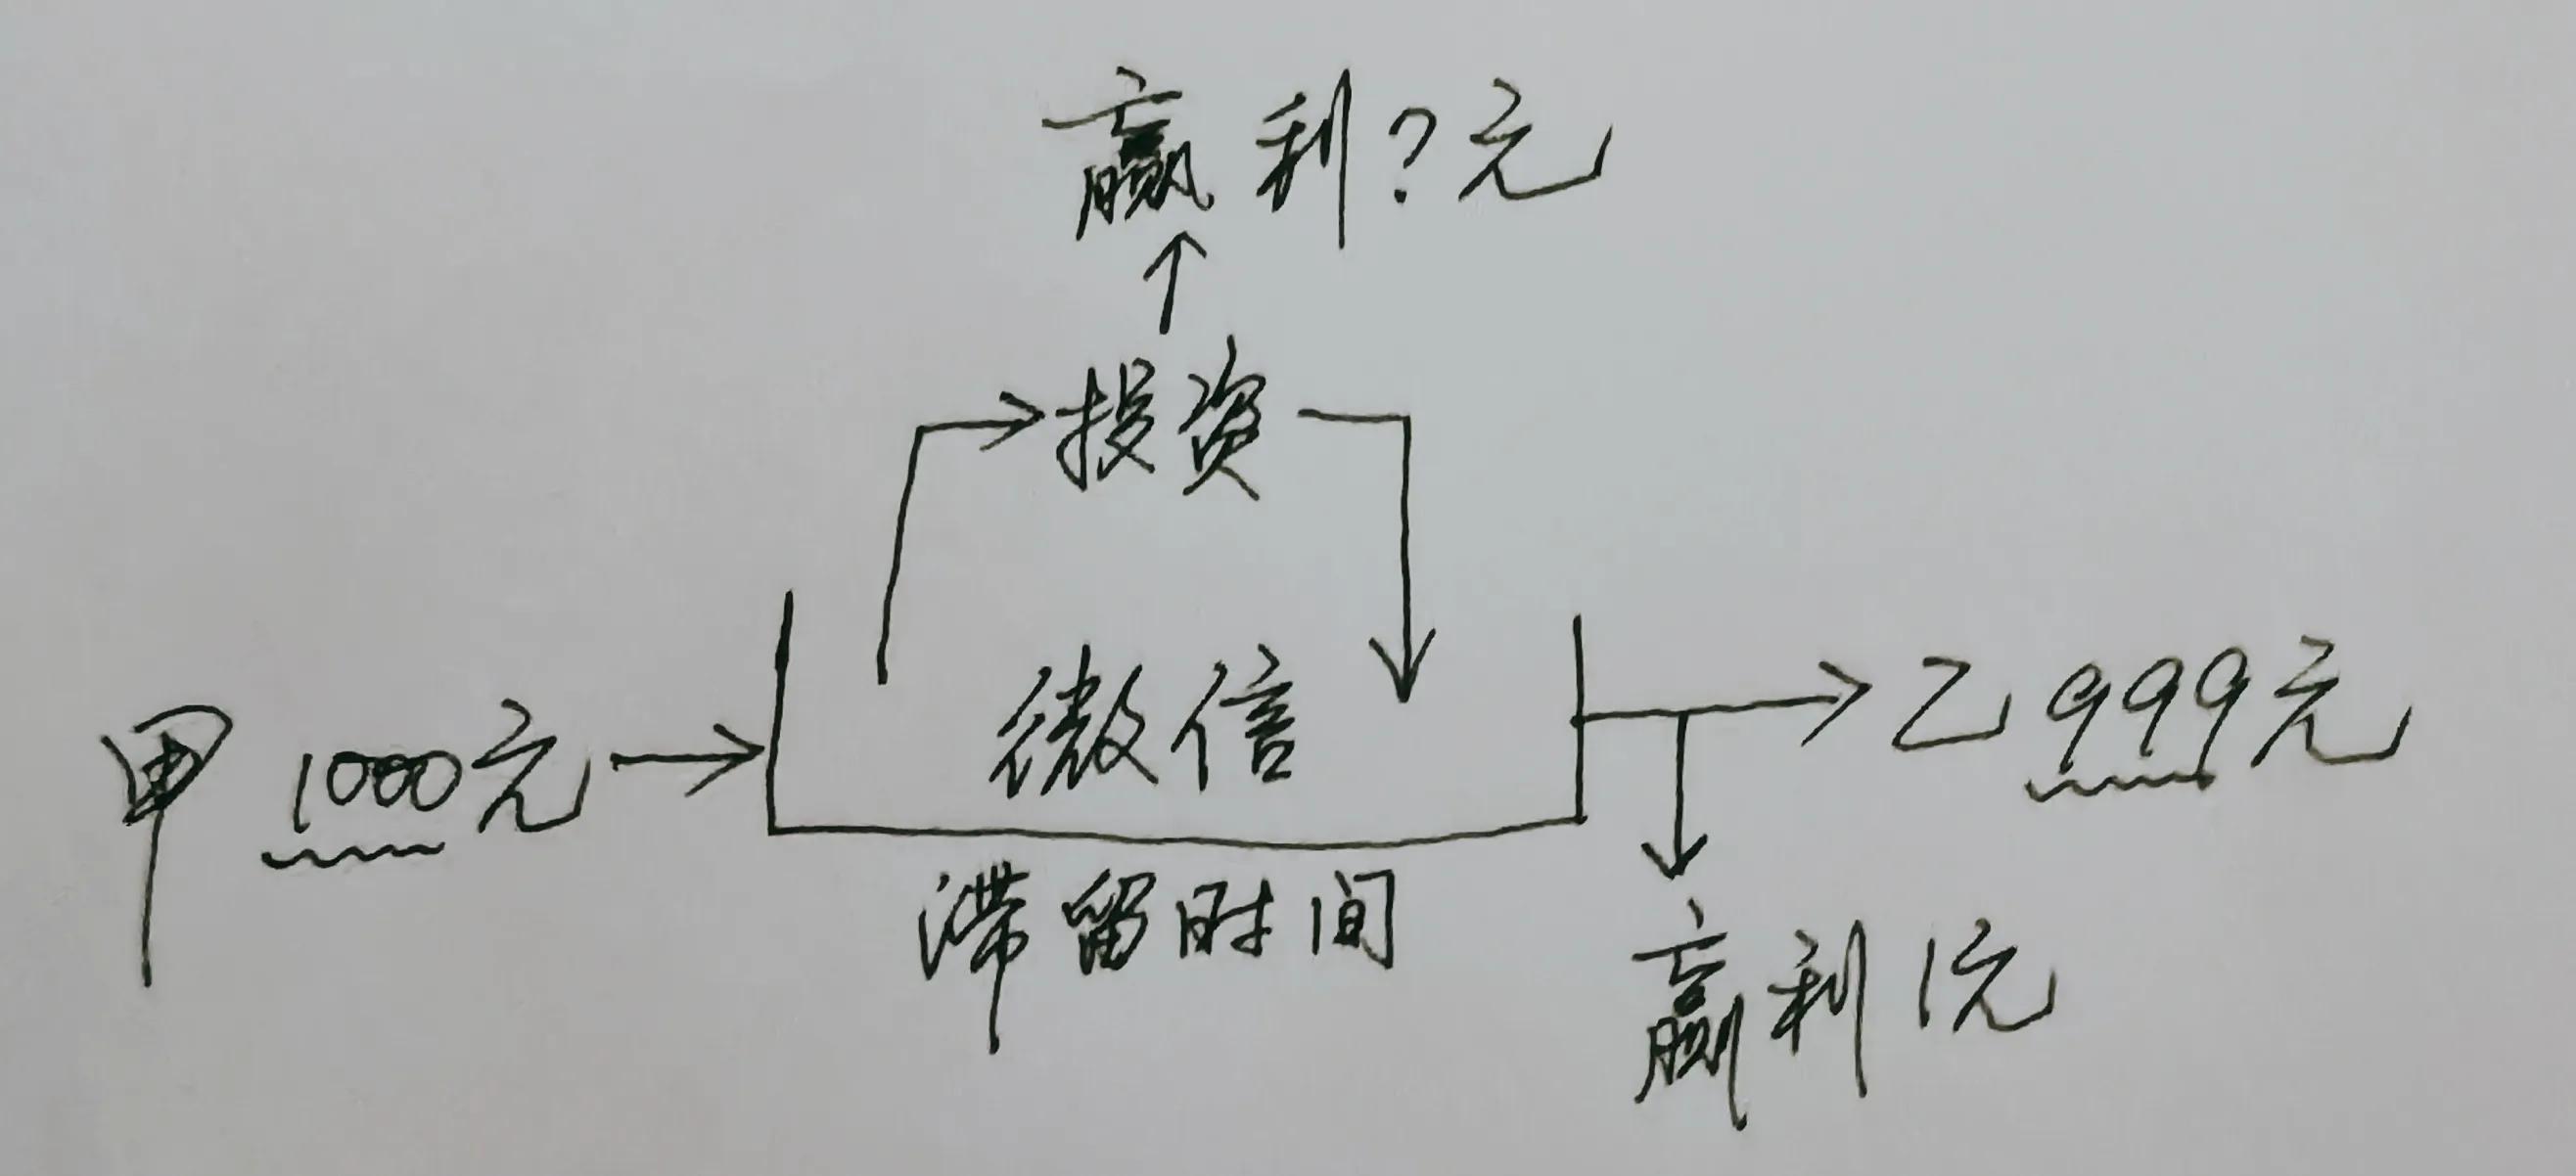 赢利？元
投资
甲 1000元
微信
乙 999元
滞留时间
赢利1元